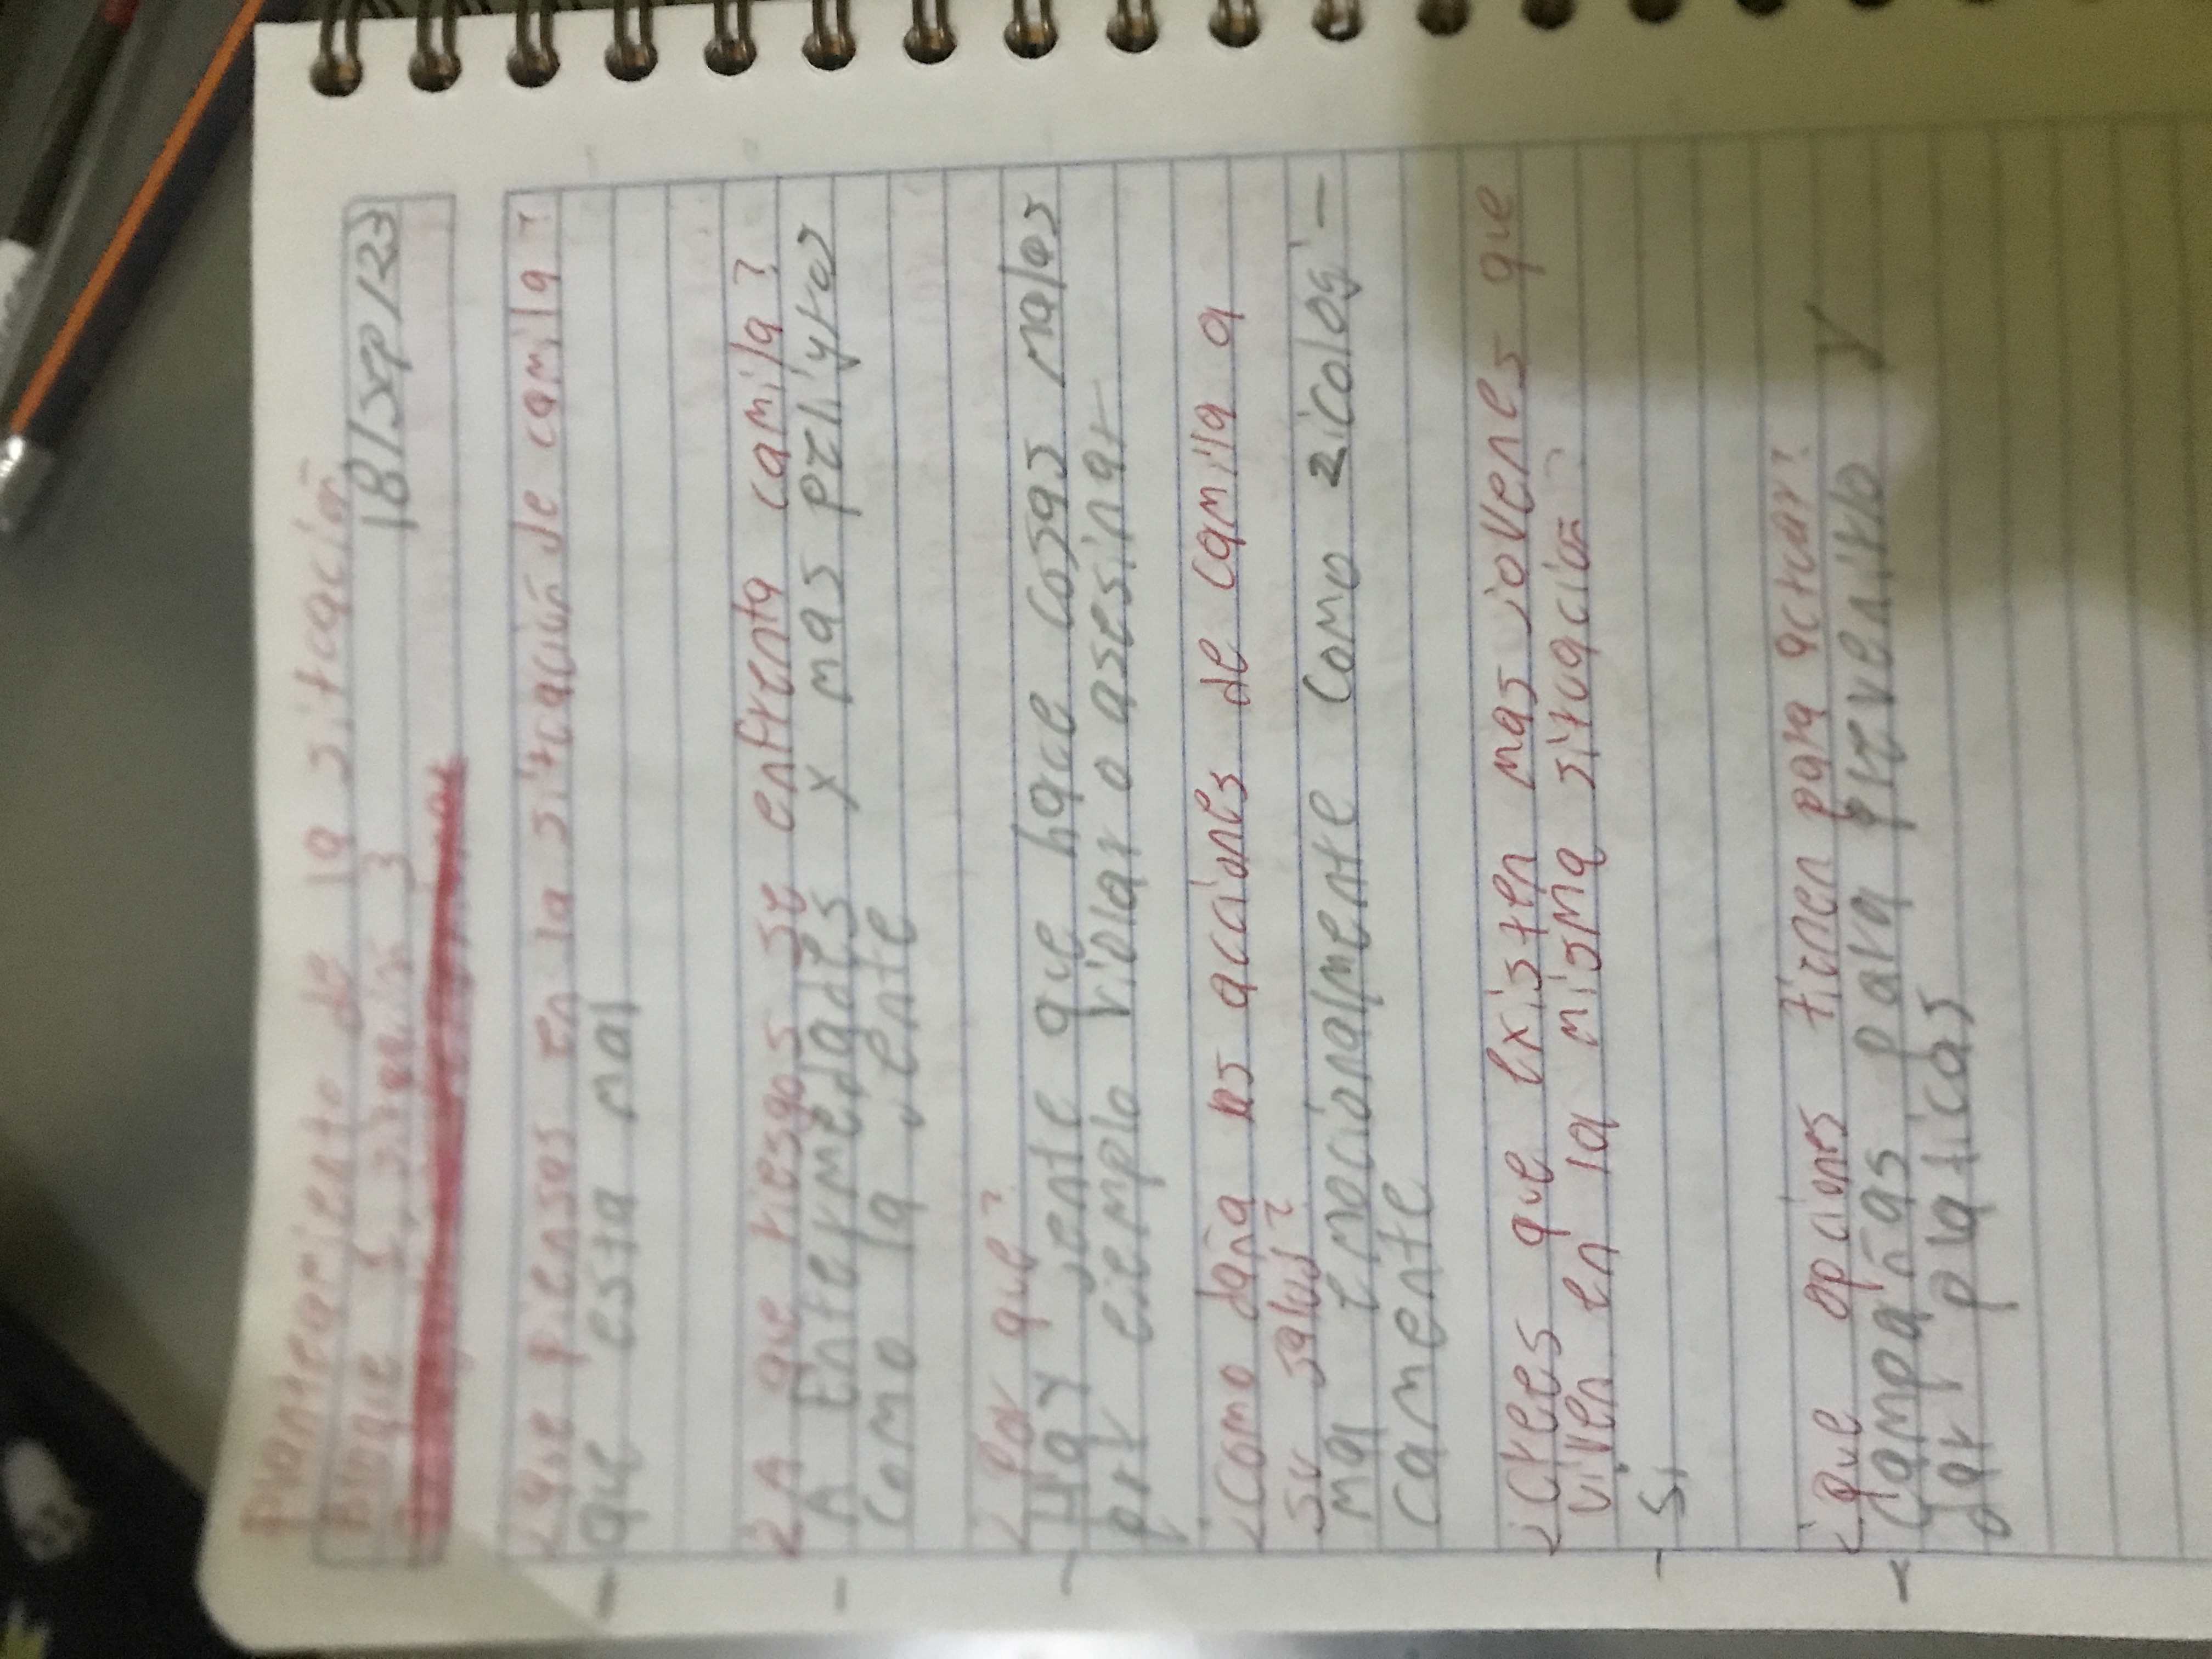 Planteamiento de la sitcación
Bloque 3
18/sep/23
¿que piensas en la sitcación de camila?
que esta mal
¿A que riesgos se enfrenta camila?
A Enfermedades y mas peligros
como la jente
¿Por que?
Hay jente que hace cosas malas
por ejemplo violar o asesinar
¿Como daña las acciones de camila a
su salud?
Mal emocionalmente como zicologi-
camente
¿Crees que existen mas jovenes que
viven en la misma situación?
Si
¿que opciones tienen para actuar?
Campañas para prevenirlo y
dar platicas